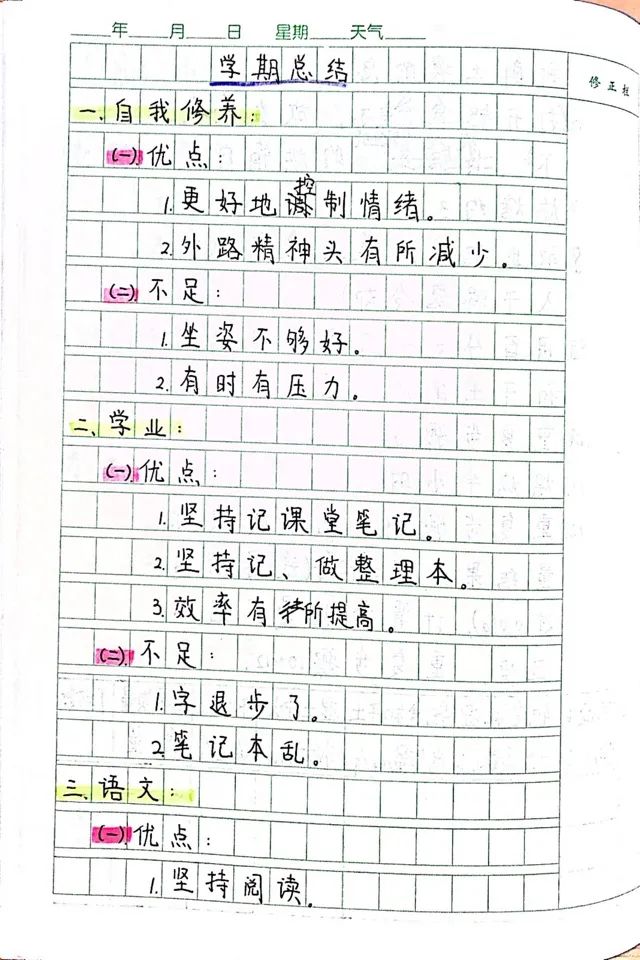 年 月 日 星期 天气
修正栏
学期总结
一、自我修养：
(一)优点：
1.更好地控制情绪。
2.外路精神头有所减少。
(二)不足：
1.坐姿不够好。
2.有时有压力。
二、学业：
(一)优点：
1.坚持记课堂笔记。
2.坚持记、做整理本。
3.效率有所提高。
(二)不足：
1.字退步了。
2.笔记本乱。
三、语文：
(一)优点：
1.坚持阅读。